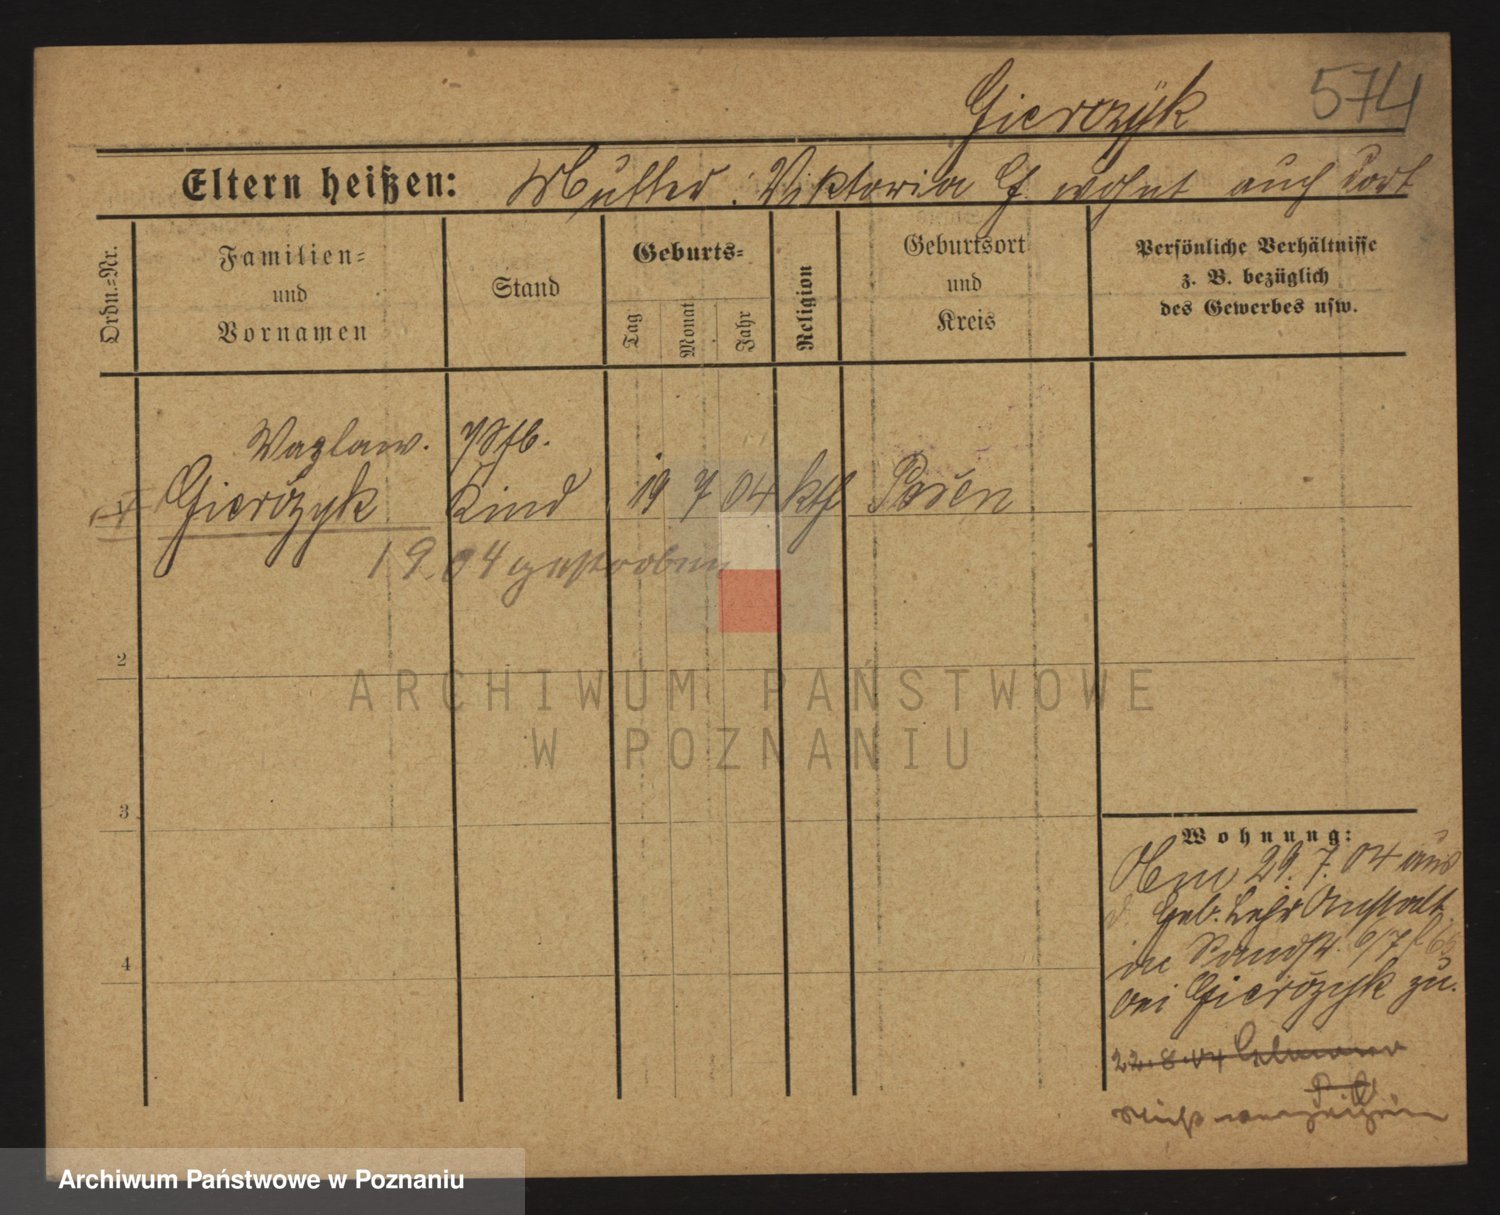 Gierczyk 574
Eltern heißen: Mutter: Viktoria G. wohnt auch dort
Ordn.=Nr.
Familien=
und
Vornamen
Stand
Geburts=
Tag
Monat
Jahr
Religion
Geburtsort
und
Kreis
Persönliche Verhältnisse
z. B. bezüglich
des Gewerbes usw.
Wazlaw.
Gierczyk Kind 19 7 04 kth Posen
19 04 gestorben
2
3
4
Wohnung:
29. 7. 04 aus
d. Geb. Lehr Anstalt
in 6/7
bei Gierczyk zu.
22.8.04
nicht
ARCHIWUM PAŃSTWOWE
W POZNANIU
Archiwum Państwowe w Poznaniu